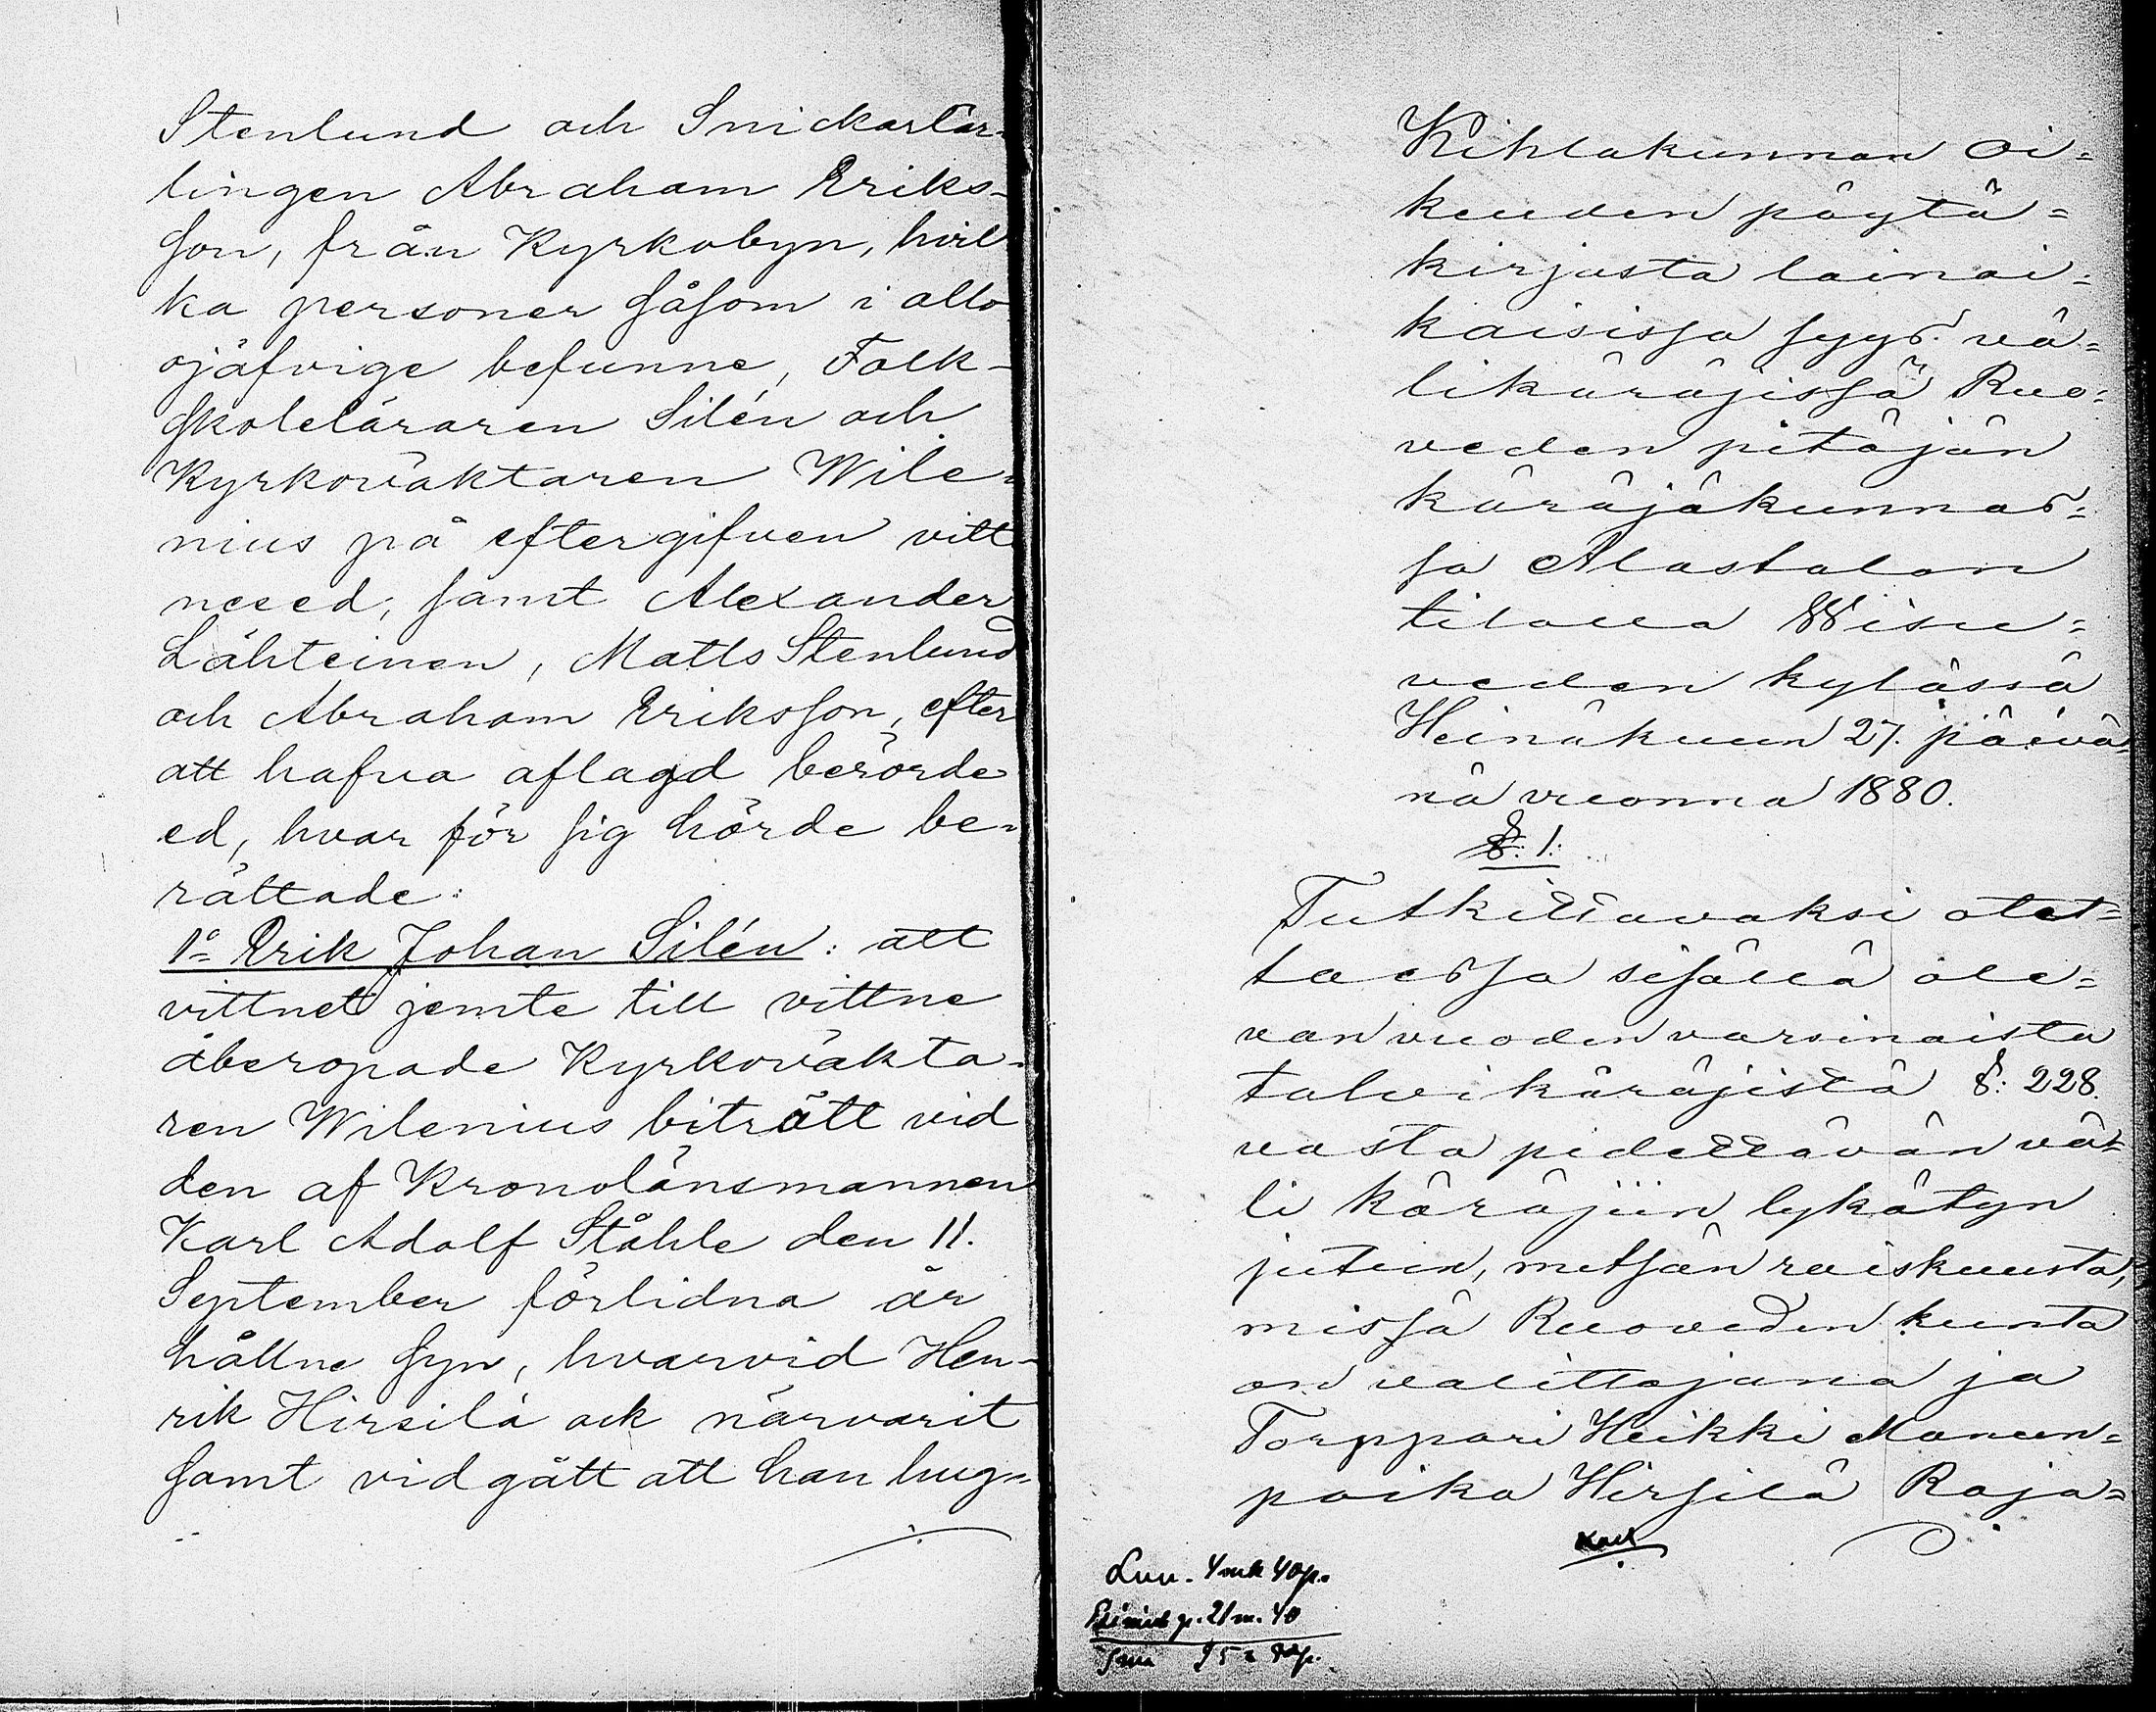 Stenlund och Snickarlär-
lingen Abraham Eriks-
son, från Kyrkobyn, hvil-
ka personer såsom i allo
ojäfvige befunne, Folk-
skoleläraren Silén och
Kyrkoväktaren Wile-
nius på eftergifven vitt-
neseed, samt Alexander
Lähteinen, Matts Stenlund
och Abraham Eriksson, efter
att hafva aflagd berörde
ed, hvar för sig hörde be-
rättade:
1º Erik Johan Silén: att
vittnet jemte till vittne
åberopade Kyrkoväkta-
ren Wilenius biträtt vid
den af Kronolänsmannen
Karl Adolf Ståhle den 11.
September förlidna år
hållne syn, hvarvid Hen-
rik Hirsilä ock närvarit
samt vidgått att han hug-
Kihlakunnan Oi=
keuden pöytä=
kirjasta lainai=
kaisissa syys. vä=
likäräjissä Ruo=
veden pitäjän
käräjäkunnas=
sa Alastalon
tilalla Wisu=
veden kylässä
Heinäkuun 27. päivä=
nä vuonna 1880.
§: 1:
Tutkittavaksi otet=
taessa sisällä ole=
van vuoden varsinaista
talvikäräjistä §: 228.
vasta pidettävän vä=
li käräjiin lykätyn
jutun, metsän raiskuusta,
missä Ruoveden kunta
on valittajana ja
Torppari Heikki Manun=
poika Hirsilä Raja=
Lun. 4 mk 40 p.
p. 21 m. 40